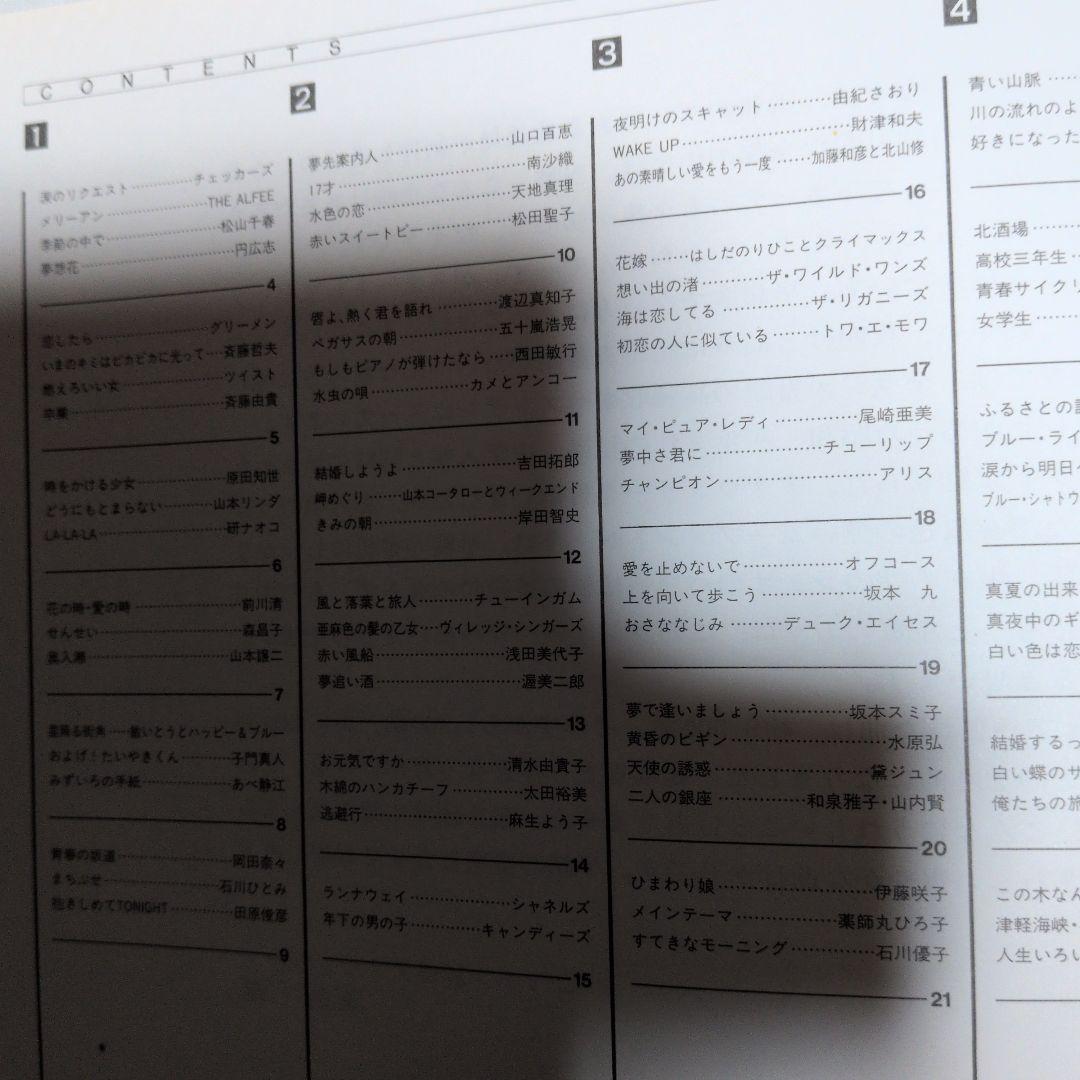 CONTENTS
1
涙のリクエスト…………チェッカーズ
メリーアン…………THE ALFEE
季節の中で…………松山千春
夢想花…………円広志
4
恋したら…………グリーメン
いまのキミはピカピカに光って…斉藤哲夫
燃えろいい女…………ツイスト
卒業…………斉藤由貴
5
時をかける少女…………原田知世
どうにもとまらない…………山本リンダ
LA-LA-LA…………研ナオコ
6
花の時・愛の時…………前川清
せんせい…………森昌子
奥入瀬…………山本譲二
7
星降る街角……敏いとうとハッピー&ブルー
およげ!たいやきくん…………子門真人
みずいろの手紙…………あべ静江
8
青春の坂道…………岡田奈々
まちぶせ…………石川ひとみ
抱きしめてTONIGHT…………田原俊彦
9
2
夢先案内人…………山口百恵
17才…………南沙織
水色の恋…………天地真理
赤いスイートピー…………松田聖子
10
唇よ、熱く君を語れ…………渡辺真知子
ペガサスの朝…………五十嵐浩晃
もしもピアノが弾けたなら……西田敏行
水虫の唄…………カメとアンコー
11
結婚しようよ…………吉田拓郎
岬めぐり……山本コータローとウィークエンド
きみの朝…………岸田智史
12
風と落葉と旅人…………チューインガム
亜麻色の髪の乙女…ヴィレッジ・シンガーズ
赤い風船…………浅田美代子
夢追い酒…………渥美二郎
13
お元気ですか…………清水由貴子
木綿のハンカチーフ…………太田裕美
逃避行…………麻生よう子
14
ランナウェイ…………シャネルズ
年下の男の子…………キャンディーズ
15
3
夜明けのスキャット…………由紀さおり
WAKE UP…………財津和夫
あの素晴しい愛をもう一度……加藤和彦と北山修
16
花嫁……はしだのりひことクライマックス
想い出の渚…………ザ・ワイルド・ワンズ
海は恋してる…………ザ・リガニーズ
初恋の人に似ている………トワ・エ・モワ
17
マイ・ピュア・レディ…………尾崎亜美
夢中さ君に…………チューリップ
チャンピオン…………アリス
18
愛を止めないで…………オフコース
上を向いて歩こう…………坂本 九
おさななじみ………デューク・エイセス
19
夢で逢いましょう…………坂本スミ子
黄昏のビギン…………水原弘
天使の誘惑…………黛ジュン
二人の銀座…………和泉雅子・山内賢
20
ひまわり娘…………伊藤咲子
メインテーマ…………薬師丸ひろ子
すてきなモーニング…………石川優子
21
4
青い山脈……
川の流れのよ
好きになった
北酒場………
高校三年生…
青春サイクリ
女学生………
ふるさとの
ブルー・ライ
涙から明日へ
ブルー・シャトウ
真夏の出来
真夜中のギ
白い色は恋
結婚するっ
白い蝶のサ
俺たちの旅
この木なん
津軽海峡・
人生いろい